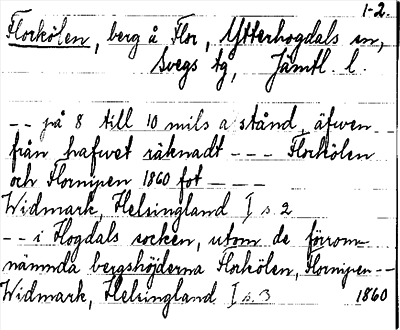 1-2.
Florkölen, berg å Flor, Ytterhogdals sn,
Svegs tg, Jämtl. l.
-- på 8 till 10 mils a stånd, äfwen
från hafwet räknadt --- Florkölen
och Flornipen 1860 fot ----
Widmark, Helsingland I s. 2
-- i Hogdals socken, utom de förom-
nämnda bergshöjderna Florkölen, Flornipen --
Widmark, Helsingland I s. 3 1860